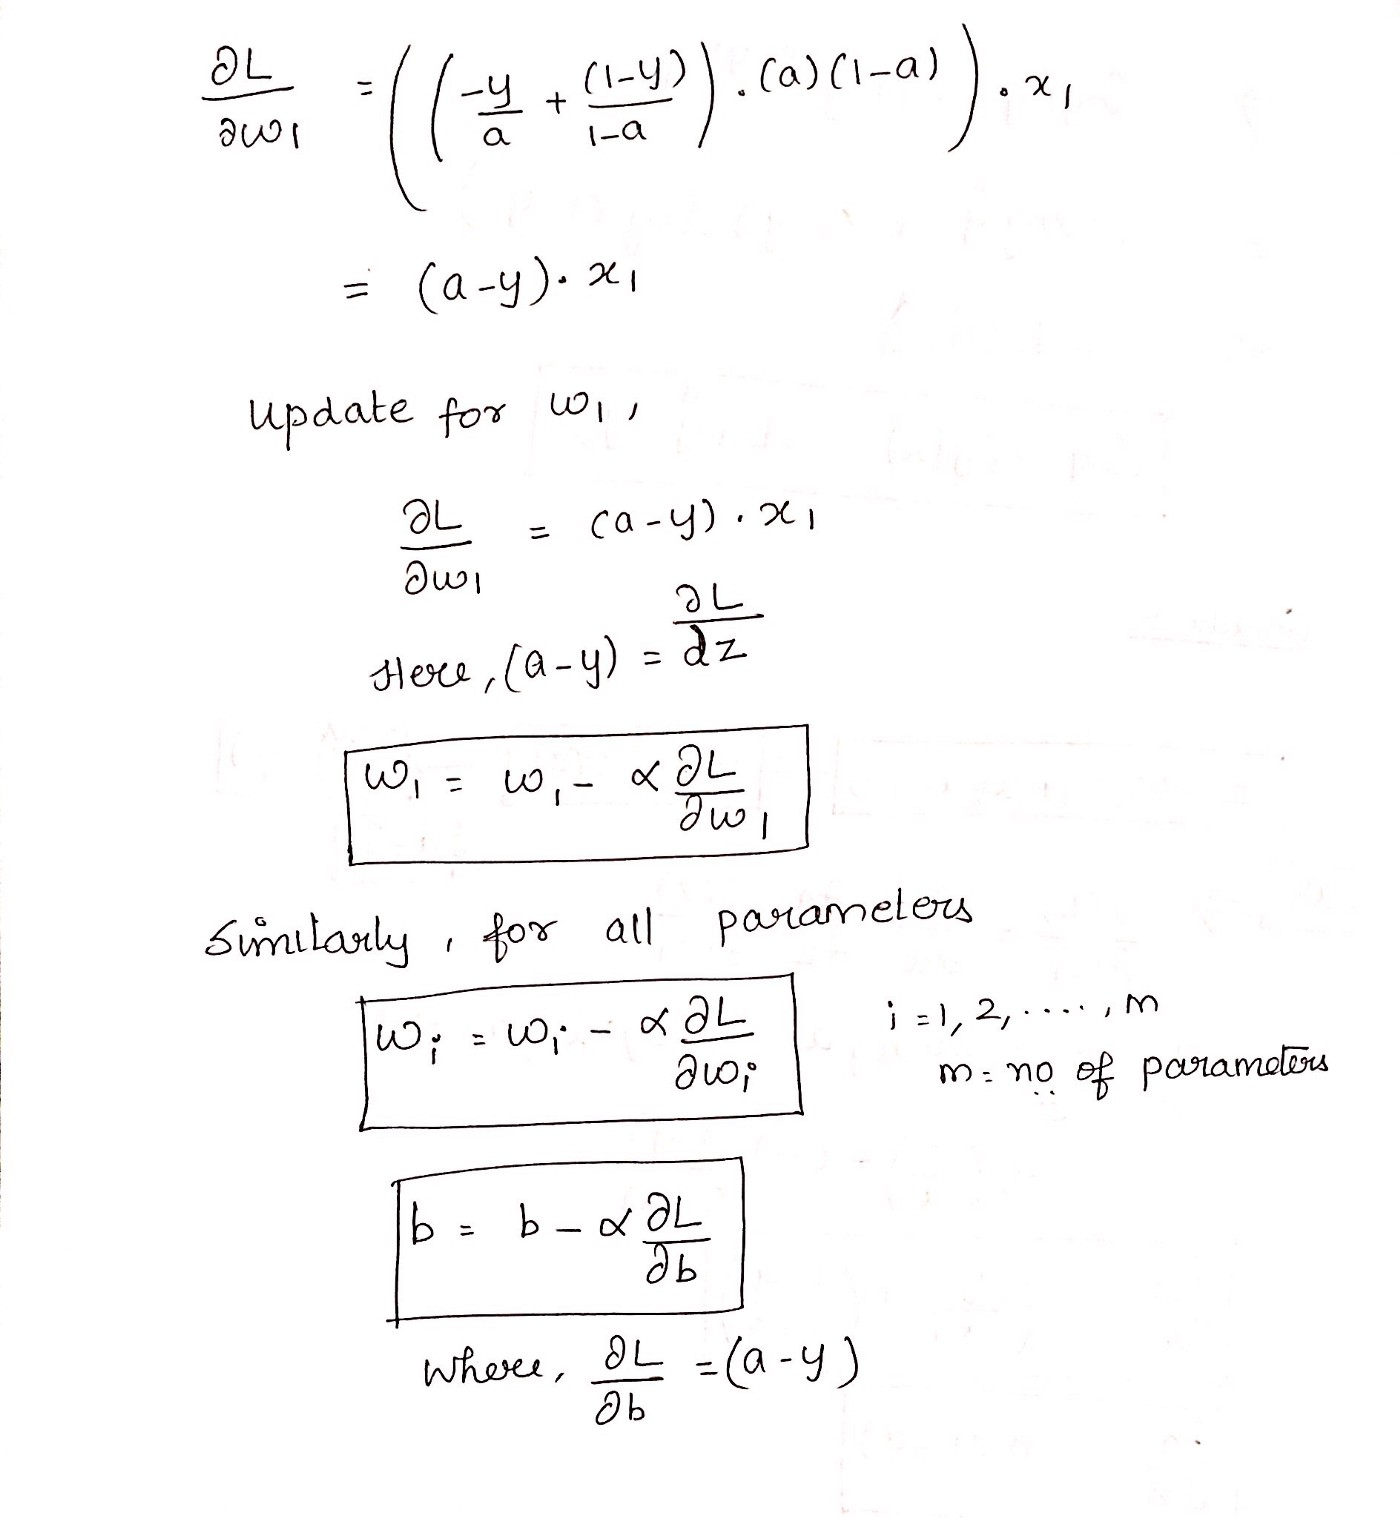 ∂L/∂w1 = ((-y/a + (1-y)/1-a) . (a)(1-a)) . x1
= (a-y). x1
update for w1,
∂L/∂w1 = (a-y) . x1
Here, (a-y) = ∂L/dz
w1 = w1 - α ∂L/∂w1
Similarly, for all parameters
wi = wi - α ∂L/∂wi i = 1, 2, ...., m
m = no of parameters
b = b - α ∂L/∂b
where, ∂L/∂b = (a-y)